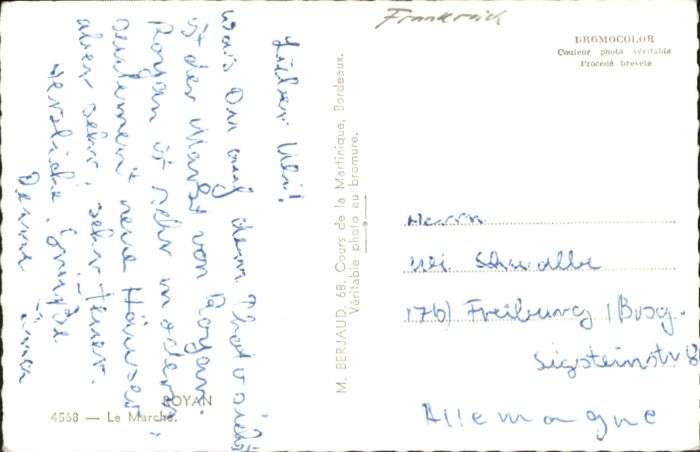 Frankreich
BROMOCOLOR
Couleur photo véritable
Procédé breveté
Lieber Uli!
Was Du auf dem Photo siehst
ist der Markt von Royan.
Royan ist sehr modern,
seulement neue Häuser
aber sehr, sehr teuer.
Herzliche Grüße
Deine
M. BERJAUD, 68, Cours de la Martinique, Bordeaux.
Véritable photo au bromure.
Herrn
Uli Schwalbe
17b) Freiburg / Brsg.
Allemagne
ROYAN
4568 — Le Marché.